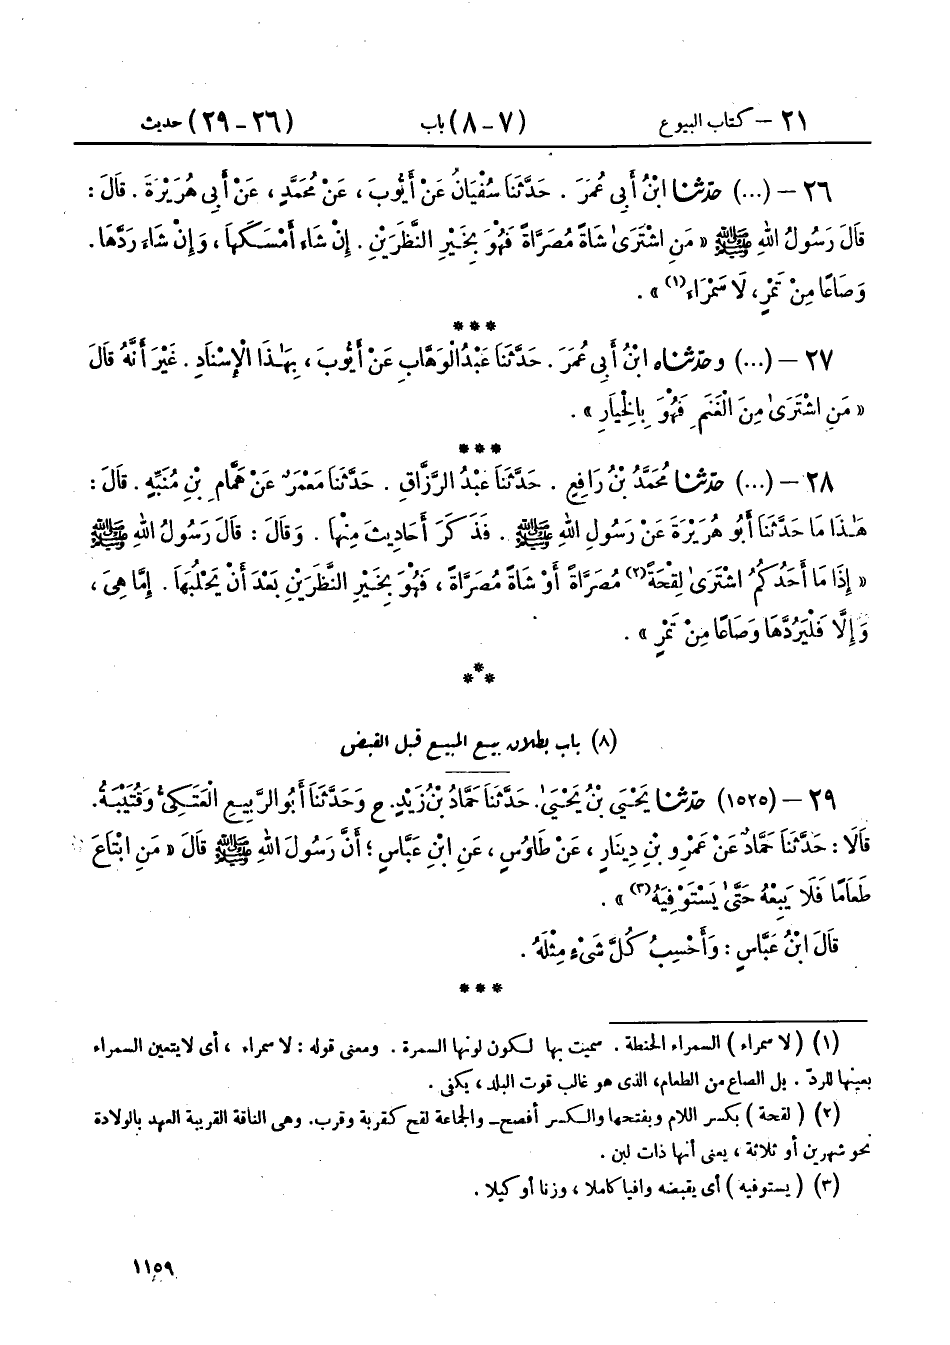 ٢١ – كتاب البيوع (٧ – ٨) باب (٢٦ – ٢٩) حديث
٢٦ – (...) حدّثنا ابْنُ أَبِي عُمَرَ . حَدَّثَنَا سُفْيَانُ عَنْ أَيُّوبَ ، عَنْ مُحَمَّدٍ ، عَنْ أَبِي هُرَيْرَةَ . قَالَ :
قَالَ رَسُولُ اللهِ ﷺ « مَنِ اشْتَرَىٰ شَاةً مُصَرَّاةً فَهُوَ بِخَيْرِ النَّظَرَيْنِ . إِنْ شَاءَ أَمْسَكَهَا ، وَإِنْ شَاءَ رَدَّهَا .
وَصَاعًا مِنْ تَمْرٍ ، لَا سَمْرَاءَ(١) » .
***
٢٧ – (...) وحدّثناه ابْنُ أَبِي عُمَرَ . حَدَّثَنَا عَبْدُ الْوَهَّابِ عَنْ أَيُّوبَ ، بِهَـٰذَا الْإِسْنَادِ . غَيْرَ أَنَّهُ قَالَ
« مَنِ اشْتَرَىٰ مِنَ الْغَنَمِ فَهُوَ بِالْخِيَارِ » .
***
٢٨ – (...) حدّثنا مُحَمَّدُ بْنُ رَافِعٍ . حَدَّثَنَا عَبْدُ الرَّزَّاقِ . حَدَّثَنَا مَعْمَرٌ عَنْ هَمَّامِ بْنِ مُنَبِّهٍ . قَالَ :
هَـٰذَا مَا حَدَّثَنَا أَبُو هُرَيْرَةَ عَنْ رَسُولِ اللهِ ﷺ . فَذَكَرَ أَحَادِيثَ مِنْهَا . وَقَالَ : قَالَ رَسُولُ اللهِ ﷺ
« إِذَا مَا أَحَدُكُمُ اشْتَرَىٰ لِقْحَةً(٢) مُصَرَّاةً أَوْ شَاةً مُصَرَّاةً ، فَهُوَ بِخَيْرِ النَّظَرَيْنِ بَعْدَ أَنْ يَحْلُبَهَا . إِمَّا هِيَ ،
وَإِلَّا فَلْيَرُدَّهَا وَصَاعًا مِنْ تَمْرٍ » .
***
(٨) باب بطلان بيع المبيع قبل القبض
٢٩ – (١٥٢٥) حدّثنا يَحْيَىٰ بْنُ يَحْيَىٰ . حَدَّثَنَا حَمَّادُ بْنُ زَيْدٍ . ح وَحَدَّثَنَا أَبُو الرَّبِيعِ الْعَتَكِيُّ وَقُتَيْبَةُ .
قَالَا : حَدَّثَنَا حَمَّادٌ عَنْ عَمْرِو بْنِ دِينَارٍ ، عَنْ طَاوُسٍ ، عَنِ ابْنِ عَبَّاسٍ ؛ أَنَّ رَسُولَ اللهِ ﷺ قَالَ « مَنِ ابْتَاعَ
طَعَامًا فَلَا يَبِعْهُ حَتَّىٰ يَسْتَوْفِيَهُ(٣) » .
قَالَ ابْنُ عَبَّاسٍ : وَأَحْسِبُ كُلَّ شَيْءٍ مِثْلَهُ .
***
(١) ( لا سمراء ) السمراء الحنطة . سميت بها لكون لونها السمرة . ومعنى قوله : لا سمراء ، أى لا يتعين السمراء
بعينها للردّ . بل الصاع من الطعام، الذى هو غالب قوت البلد ، يكفى .
(٢) ( لقحة ) بكسر اللام وبفتحها والكسر أفصح– والجماعة لقح كقربة وقرب. وهى الناقة القريبة العهد بالولادة
نحو شهرين أو ثلاثة ، يعنى أنها ذات لبن .
(٣) ( يستوفيه ) أى يقبضه وافيا كاملا ، وزنا أو كيلا .
١١٥٩